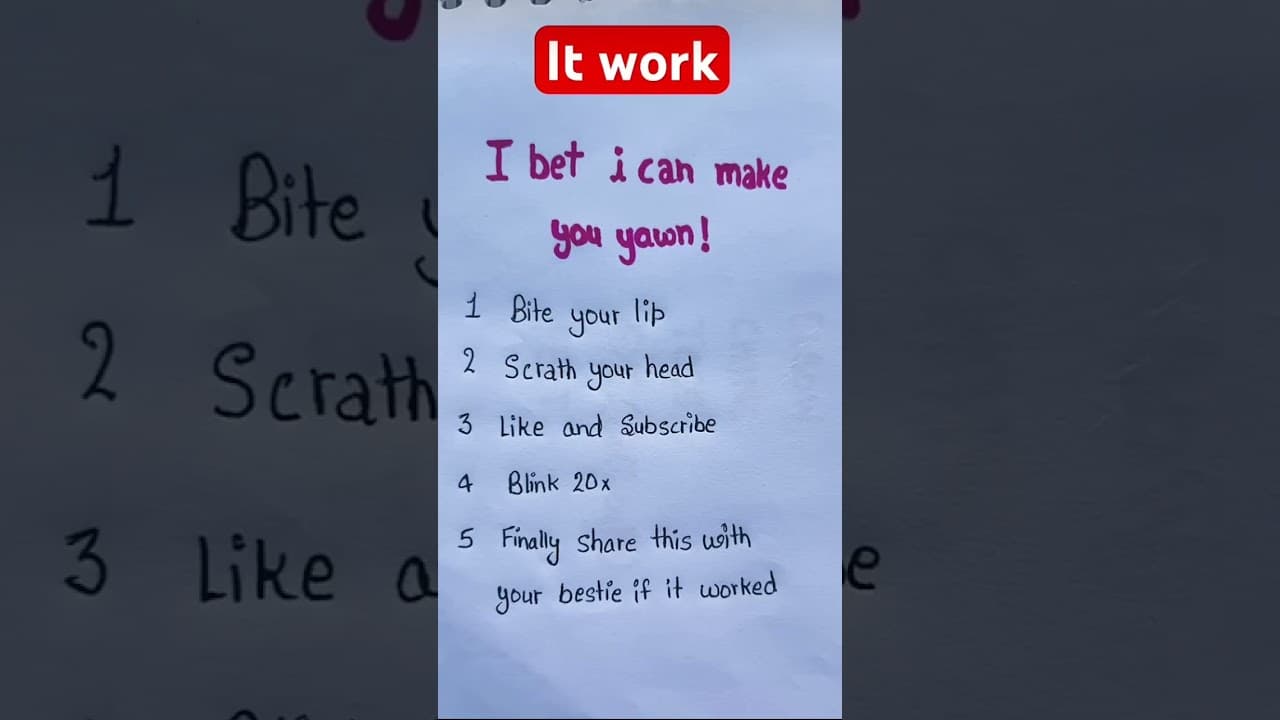 It work
I bet i can make
you yawn!
1 Bite your lip
2 Scrath your head
3 Like and Subscribe
4 Blink 20x
5 Finally share this with
your bestie if it worked
1 Bite
2 Scrath
3 Like a